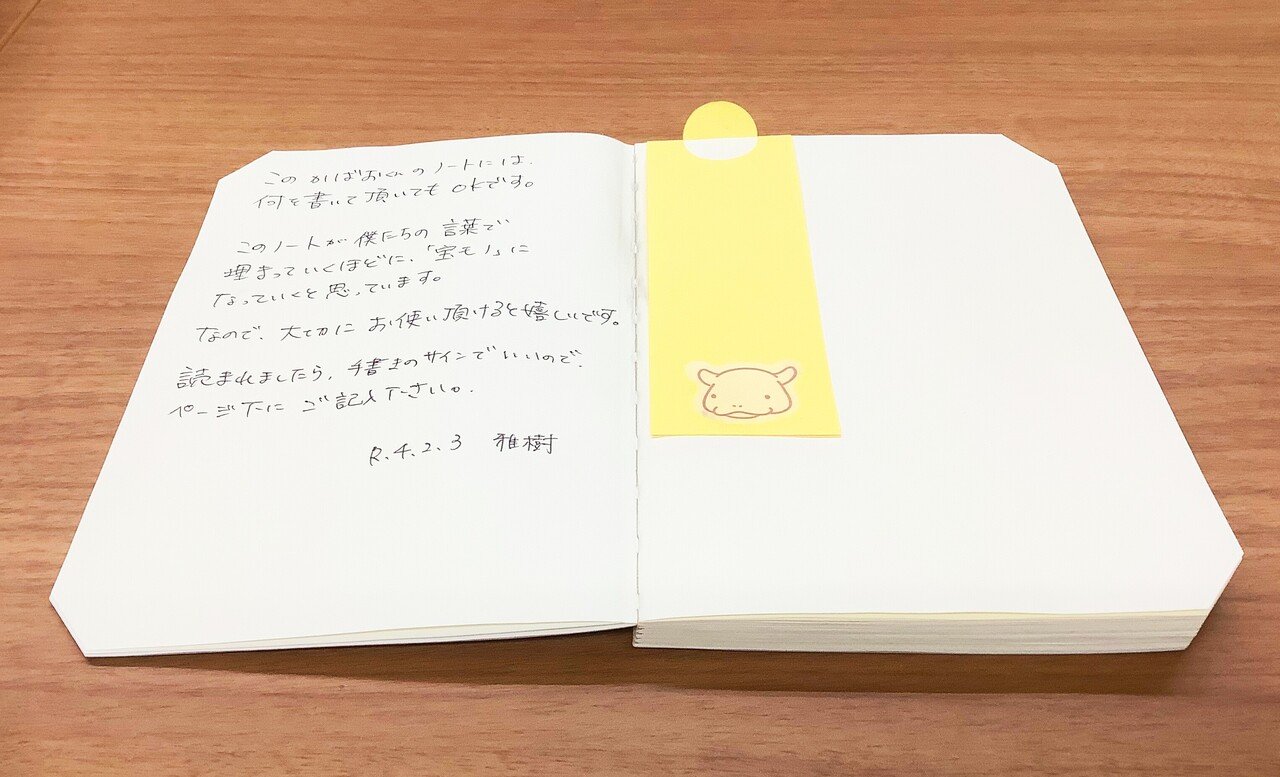 このかばおくんのノートには、
何を書いて頂いてもOKです。
このノートが僕たちの言葉で
埋まっていくほどに、「宝モノ」に
なっていくと思っています。
なので、大切にお使い頂けると嬉しいです。
読まれましたら、手書きのサインでいいので、
ページ下にご記入下さい。
R.4.2.3 雅樹